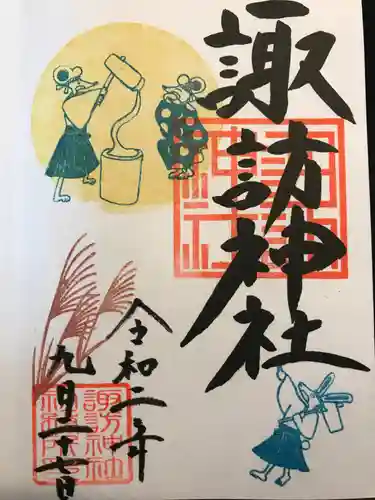 諏訪神社
令和二年
九月二十七日
諏訪神社